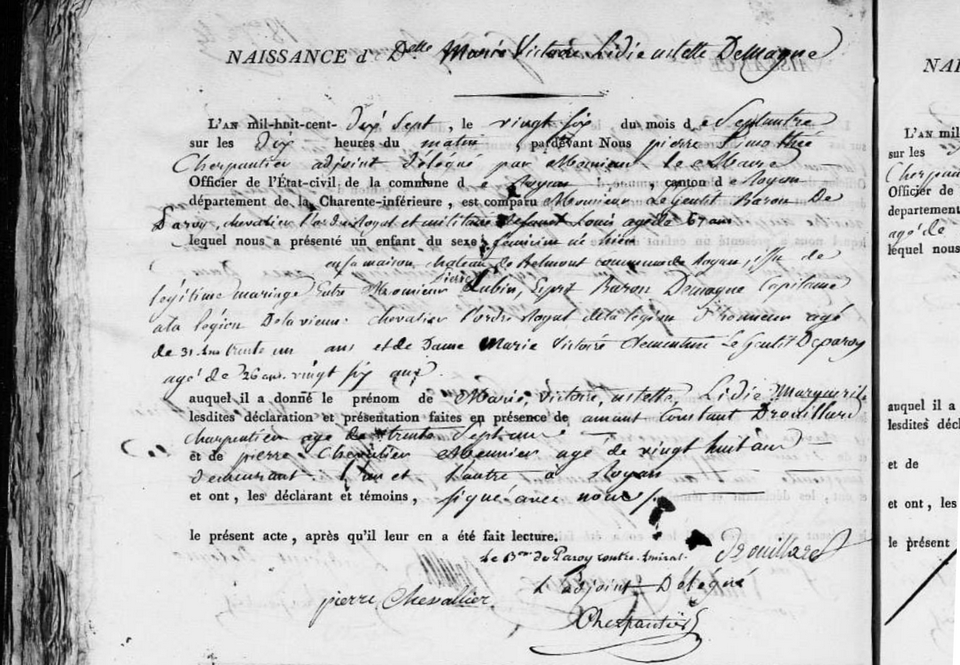 NAISSANCE d Delle Marie Victoire Lidie astelle Demagne
L'AN mil-huit-cent- dix sept, le vingt six du mois de Septambre
sur les dix heures du matin, pardevant Nous pierre Timothée
Cherpantier adjoint délégué par Monsieur le Maire
Officier de l'État-civil de la commune de Royan, canton de Royan
département de la Charente-inférieure, est comparu Monsieur Le Gentil Baron De
Paroy, chevalier l'ordre Royal et militaire de Saint Louis agé de 67 ans
lequel nous a présenté un enfant du sexe féminin né hier
en sa maison, chateau de Belmont commune de Royan, issu de
légitime mariage Entre Monsieur Lubin, Baron Demagne Capitaine
a la légion De la vienne. chevalier l'ordre Royal de la légion d'honneur agé
de 31 ans trente un ans et de Dame Marie Victoire Clementine Le Gentil Deparoy
agé de 26 ans. vingt six ans
auquel il a donné le prénom de Marie, Victoire, astelle, Lidie Marguerite
lesdites déclaration et présentation faites en présence de amant Constant Drouillard
charpentier age de trente Sept ans
et de pierre Chevalier Meunier age de vingt huit an
demeurant l'un et l'autre a Royan
et ont, les déclarant et témoins, signé avec nous
le présent acte, après qu'il leur en a été fait lecture.
Le Bon de Paroy contre amiral
Drouillard
L'adjoint Délégué
pierre Chevallier
Cherpantier
NAI
L'AN mil-h
sur les
Cherpan
Officier de
departement
agé de
lequel nous
auquel il a
lesdites décl
et de
et ont, les
le présent